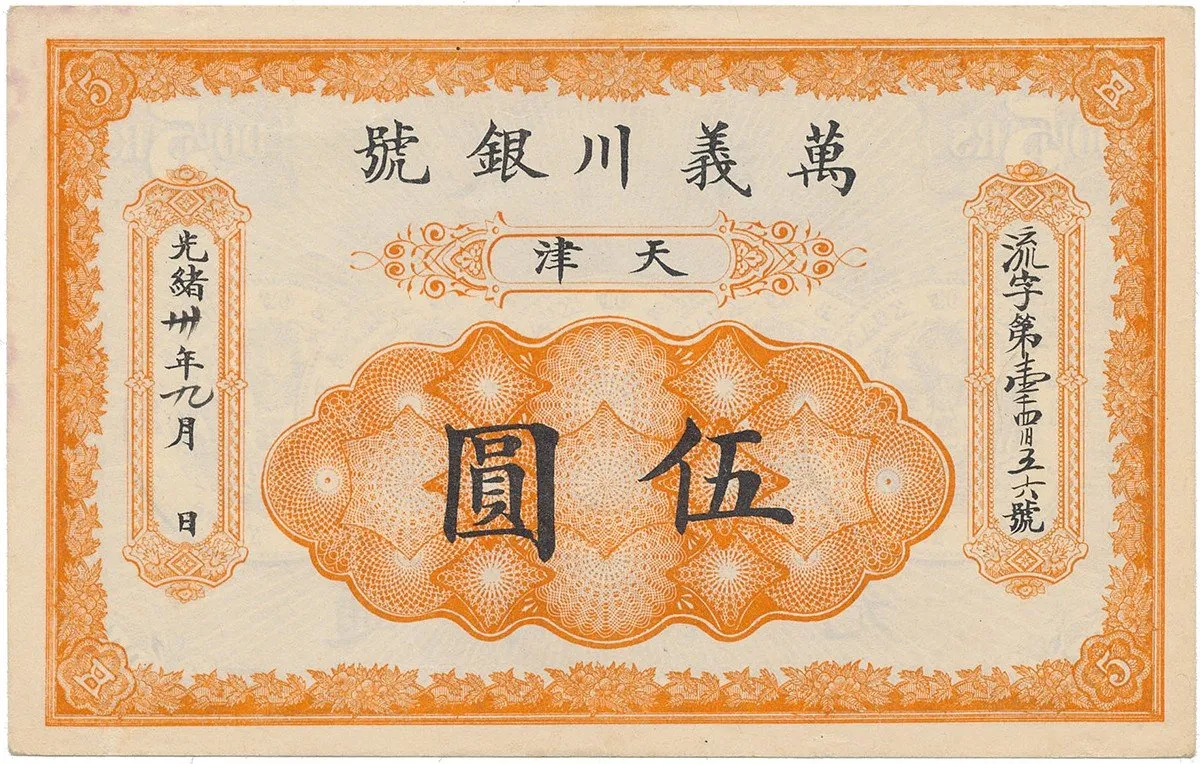 萬義川銀號
天津
伍圓
流字第壹千四百五六號
光緒卅年九月 日
5
5